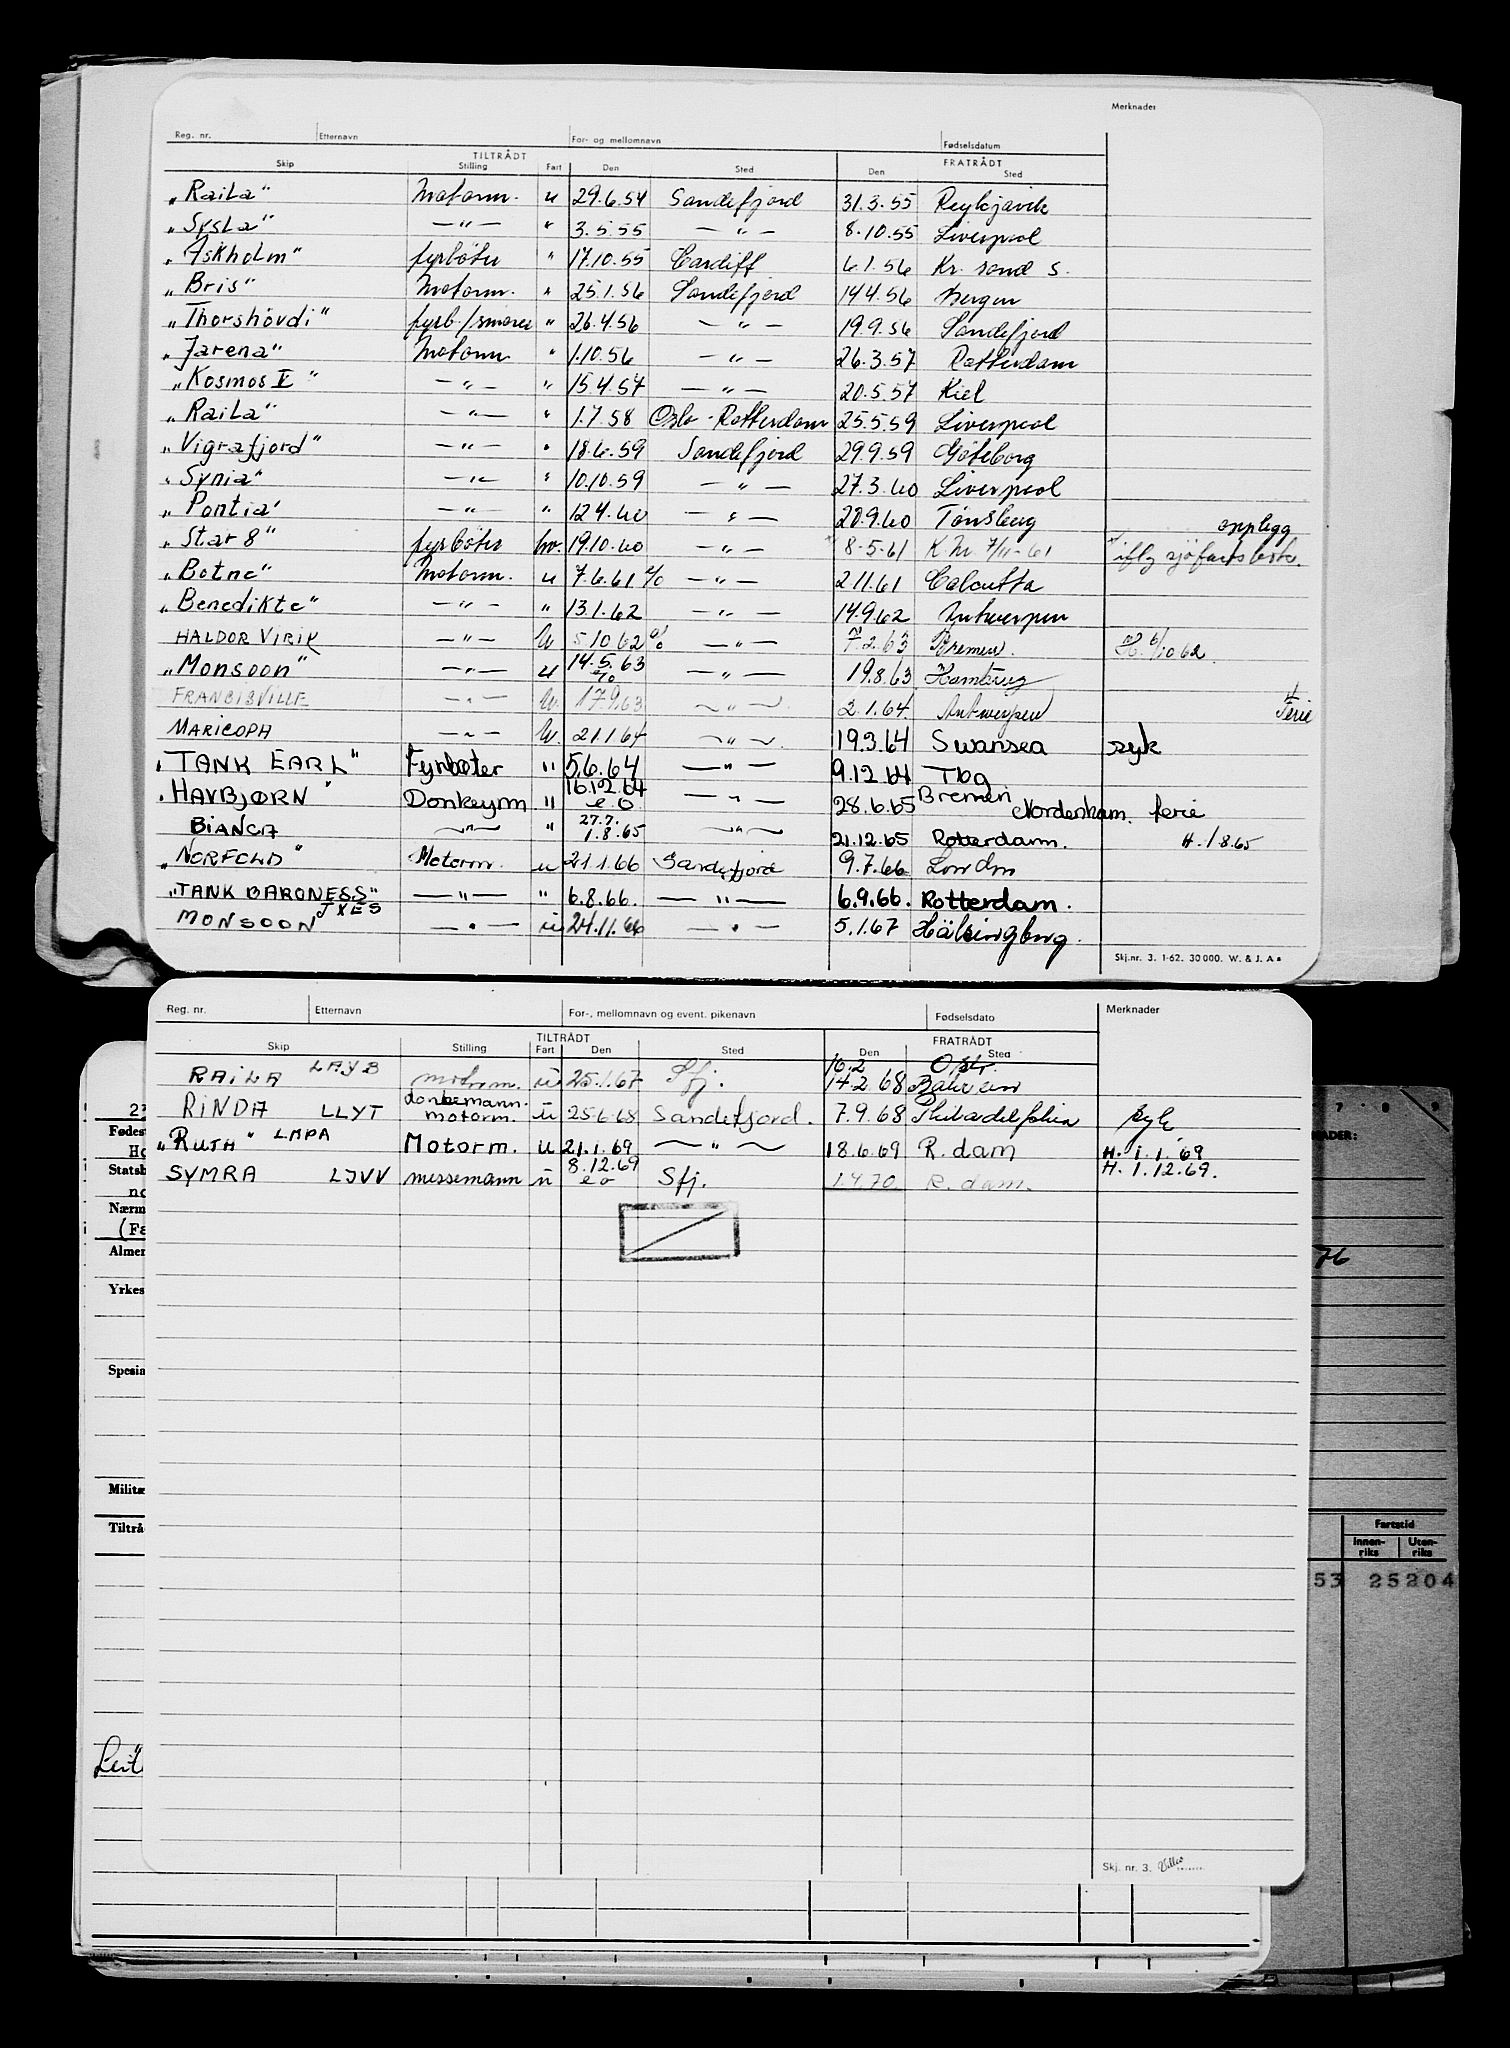 Merknader
Reg. nr. Etternavn For- og mellomnavn Fødselsdatum
TILTRÅDT FRATRÅDT
Skip Stilling Fart Den Sted Den Sted
„Raila" Motorm. u 29.6.54 Sandefjord 31.3.55 Reykjavik
„Sysla" —"— " 3.5.55 —"— 8.10.55 Liverpool
„Askholm" fyrbøter " 17.10.55 Cardiff 6.1.56 Kr. sand S.
„Bris" Motorm. " 25.1.56 Sandefjord 14.4.56 Bergen
„Thorshövdi" fyrb./smører " 26.4.56 —"— 19.9.56 Sandefjord
„Jarena" Motorm " 1.10.56 —"— 26.3.57 Rotterdam
„Kosmos V" —"— " 15.4.57 —"— 20.5.57 Kiel
„Raila" —"— " 1.7.58 Oslo - Rotterdam 25.5.59 Liverpool
„Vigrafjord" —"— " 18.6.59 Sandefjord 29.9.59 Gøteborg
„Synia" —"— " 10.10.59 —"— 27.3.60 Liverpool
„Pontia" —"— " 12.4.60 —"— 20.9.60 Tønsberg
opplegg
„Star 8" fyrbøter hv. 19.10.60 —"— 8-5-61 K.M 7/11-61 iflg sjøfartsbok.
„Botne" Motorm. u 7.6.61 —"— 2.11.61 Calcutta
„Benedikte" —"— " 13.1.62 —"— 14.9.62 Antwerpen
HALDOR VIRIK —"— U 5.10.62 —"— 7.2.63 Bremen. H. 6/10 62.
„Monsoon" —"— u 14.5.63 —"— 19.8.63 Hamburg
FRANCISVILLE —"— U. 17.9.63 —"— 2.1.64. Antwerpen Ferie
MARICOPA —"— U. 21.1.64 —"— 19.3.64 Swansea syk
„TANK EARL" Fyrbøter " 5.6.64 —"— 9.12.64 Tbg
„HAVBJØRN" Donkeym " 16.12.64 e.o —"— 28.6.65 Bremen Nordenham. ferie
BIANCA —"— " 27.7. 1.8.65 —"— 21.12.65 Rotterdam. H. 1/8.65
„NORFOLD" Motorm. u 21.1.66 Sandefjord 9.7.66 London
„TANK BARONESS" —"— " 6.8.66. —"— 6.9.66. Rotterdam.
MONSOON JXES —"— u 24.11.66 —"— 5.1.67 Hälsingborg.
Skj.nr. 3. 1-62. 30 000. W. & J. A s
Reg. nr. Etternavn For-, mellomnavn og event. pikenavn Fødselsdato Merknader
TILTRÅDT FRATRÅDT
Skip Stilling Fart Den Sted Den Sted
16.2
RAILA LAYB motorm. u 25.1.67 Sfj. 14.2.68 Bahrein
donkemann.
RINDA LLYT motorm. u 25.6.68 Sandefjord. 7.9.68 Philadelphia syk
„RUTH" LMPA Motorm. u 21.1.69 —"— 18.6.69 R.dam H. 1.1.69
SYMRA LJVV messemann u 8.12.69 e o Sfj. 1.4.70. R.dam. H. 1.12.69.
Skj. nr. 3.
27
Fødes
Ho
Statsb
no
Nærm
(Fa
Almen
Yrkes
Spesia
Militæ
Tiltrå
7 8 9
NADER:
76
Fartstid
Innen-riks Uten-riks
53 25204